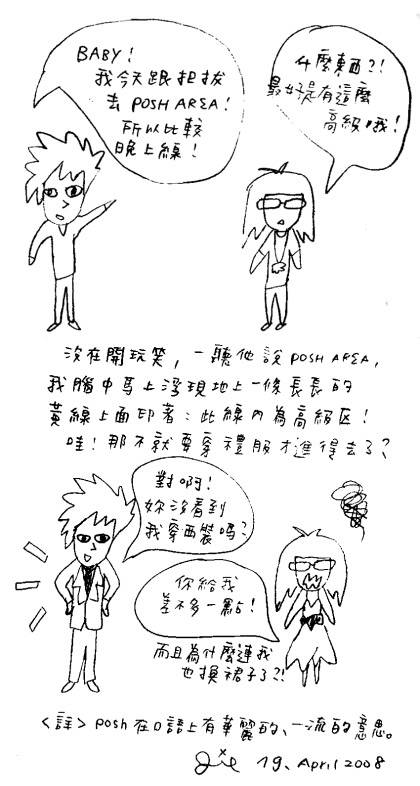 BABY!
我今天跟担拔
去 POSH AREA!
所以比較
晚上線!
什麼東西?!
最好是有這麼
高級哦!
沒在開玩笑,一聽他說 POSH AREA,
我腦中馬上浮現地上一條長長的
黃線上面印著:此線內為高級区!
哇!那不就要穿禮服才進得去了?
對啊!
妳沒看到
我穿西裝嗎?
你給我
差不多一點!
而且為什麼連我
也換裙子了?!
<註> posh 在口語上有華麗的、一流的意思。
jie 19, April 2008